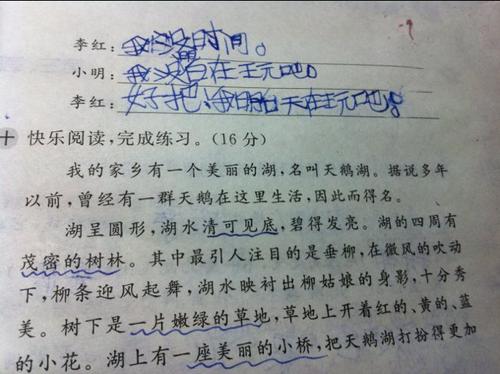 李红：我没时间。
小明：我没
李红：好把，我明天在玩吧。
十 快乐阅读，完成练习。（16 分）
我的家乡有一个美丽的湖，名叫天鹅湖。据说多年
以前，曾经有一群天鹅在这里生活，因此而得名。
湖呈圆形，湖水清可见底，碧得发亮。湖的四周有
茂密的树林。其中最引人注目的是垂柳，在微风的吹动
下，柳条迎风起舞，湖水映衬出柳姑娘的身影，十分秀
美。树下是一片嫩绿的草地，草地上开着红的、黄的、蓝
的小花。湖上有一座美丽的小桥，把天鹅湖打扮得更加